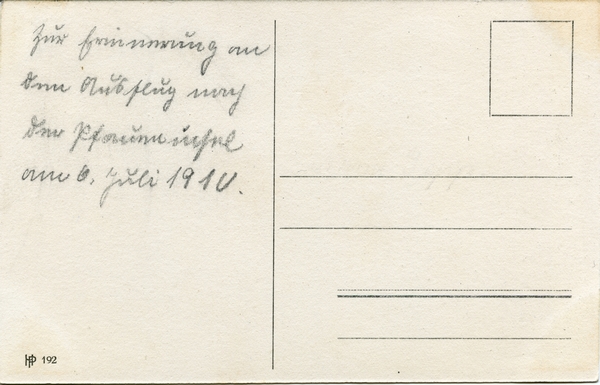 Zur Erinnerung an
den Ausflug nach
der Pfaueninsel
am 6. Juli 1910.
HP 192